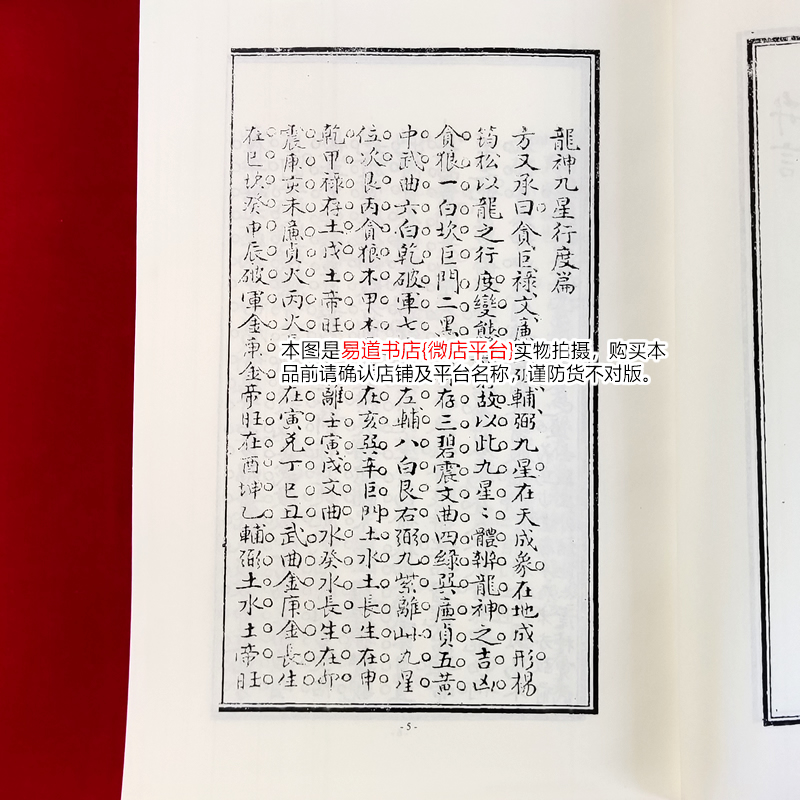 龍神九星行度篇
方又承曰貪巨祿文廉輔弼九星在天成象在地成形楊
筠松以龍之行度變態故以此九星〻體辨龍神之吉凶
貪狼一白坎巨門二黑存三碧震文曲四綠巽廉貞五黃
中武曲六白乾破軍七左輔八白艮右弼九紫離此九星
位次艮丙貪狼木甲木在亥巽辛巨門土水土長生在申
乾甲祿存土戊土帝旺離壬寅戌文曲水癸水長生在卯
震庚亥未廉貞火丙火在寅兌丁巳丑武曲金庚金長生
在巳坎癸申辰破軍金庚金帝旺在酉坤乙輔弼土水土帝旺
本图是易道书店{微店平台}实物拍摄，购买本
品前请确认店铺及平台名称，谨防货不对版。
- 5 -